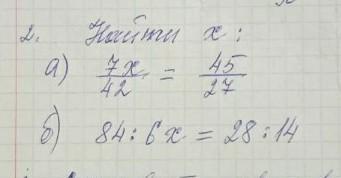 2. Найти x:
а) 7x/42 = 45/27
б) 84 : 6x = 28 : 14